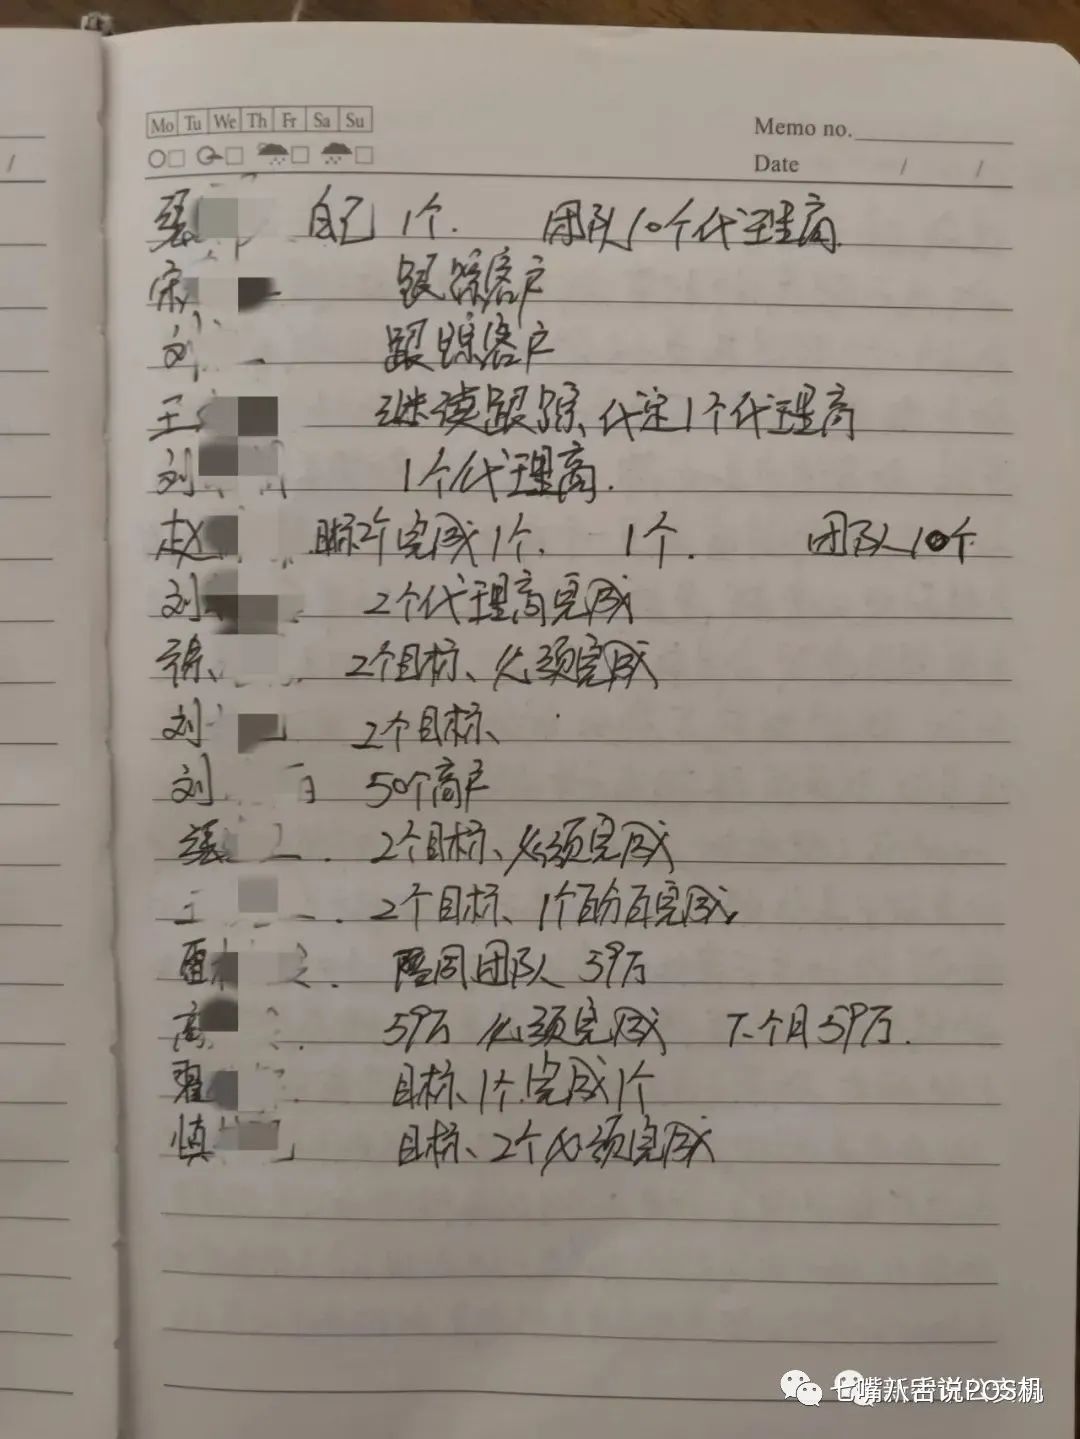 Mo Tu We Th Fr Sa Su
Memo no.
Date / /
自己 1个. 团队10个代理商.
宋 跟踪客户
刘 跟踪客户
王 继续跟踪、代定1个代理商
刘 1个代理商.
赵 目标2个完成1个. 1个. 团队10个
刘 2个代理商完成
徐、 2个目标、必须完成
刘 2个目标、
刘 50个商户
张 2个目标、必须完成
王 2个目标、1个百分百完成.
雷 陪同团队 59万
高 59万 必须完成 下个月59万.
翟 目标、1个.完成1个
慎 目标、2个必须完成
说POS机